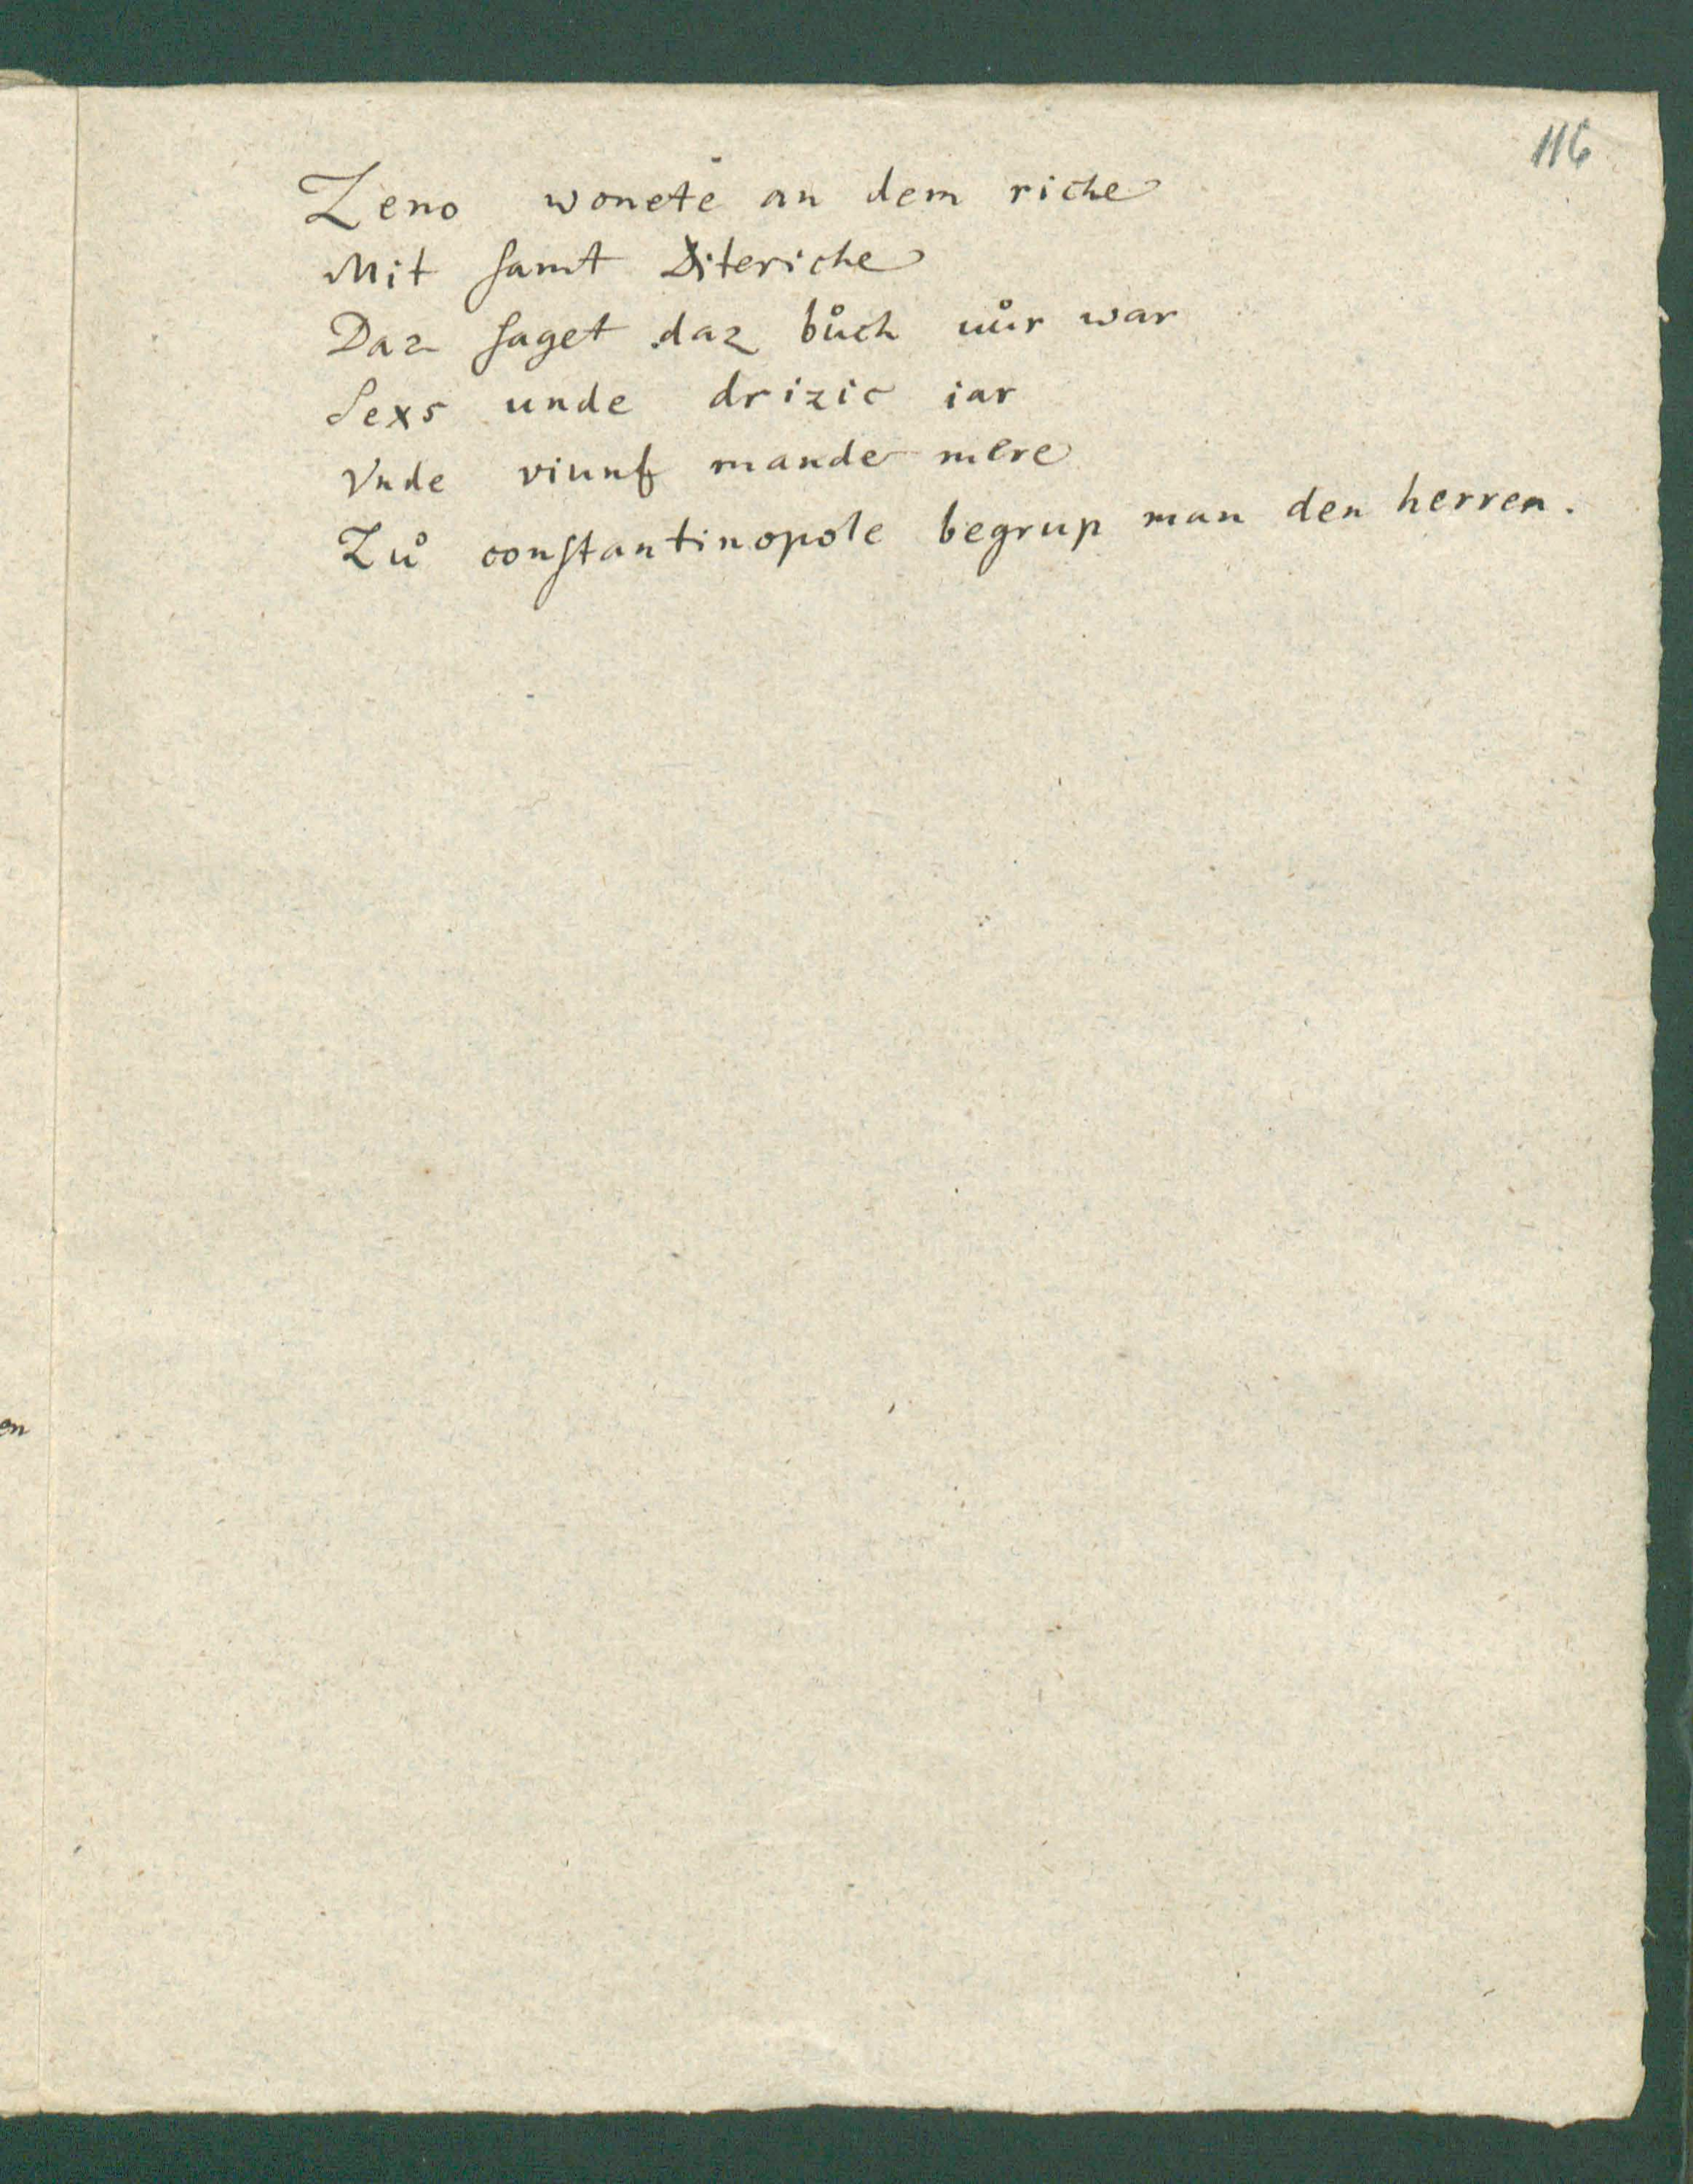 116
Zeno wonete an dem riche
Mit ſamt Diteriche
Daz ſaget daz bůch uůr war
Sexs unde drizic iar
Vnde viunf mande mere
Zů conſtantinopole begrup man den herren.
en